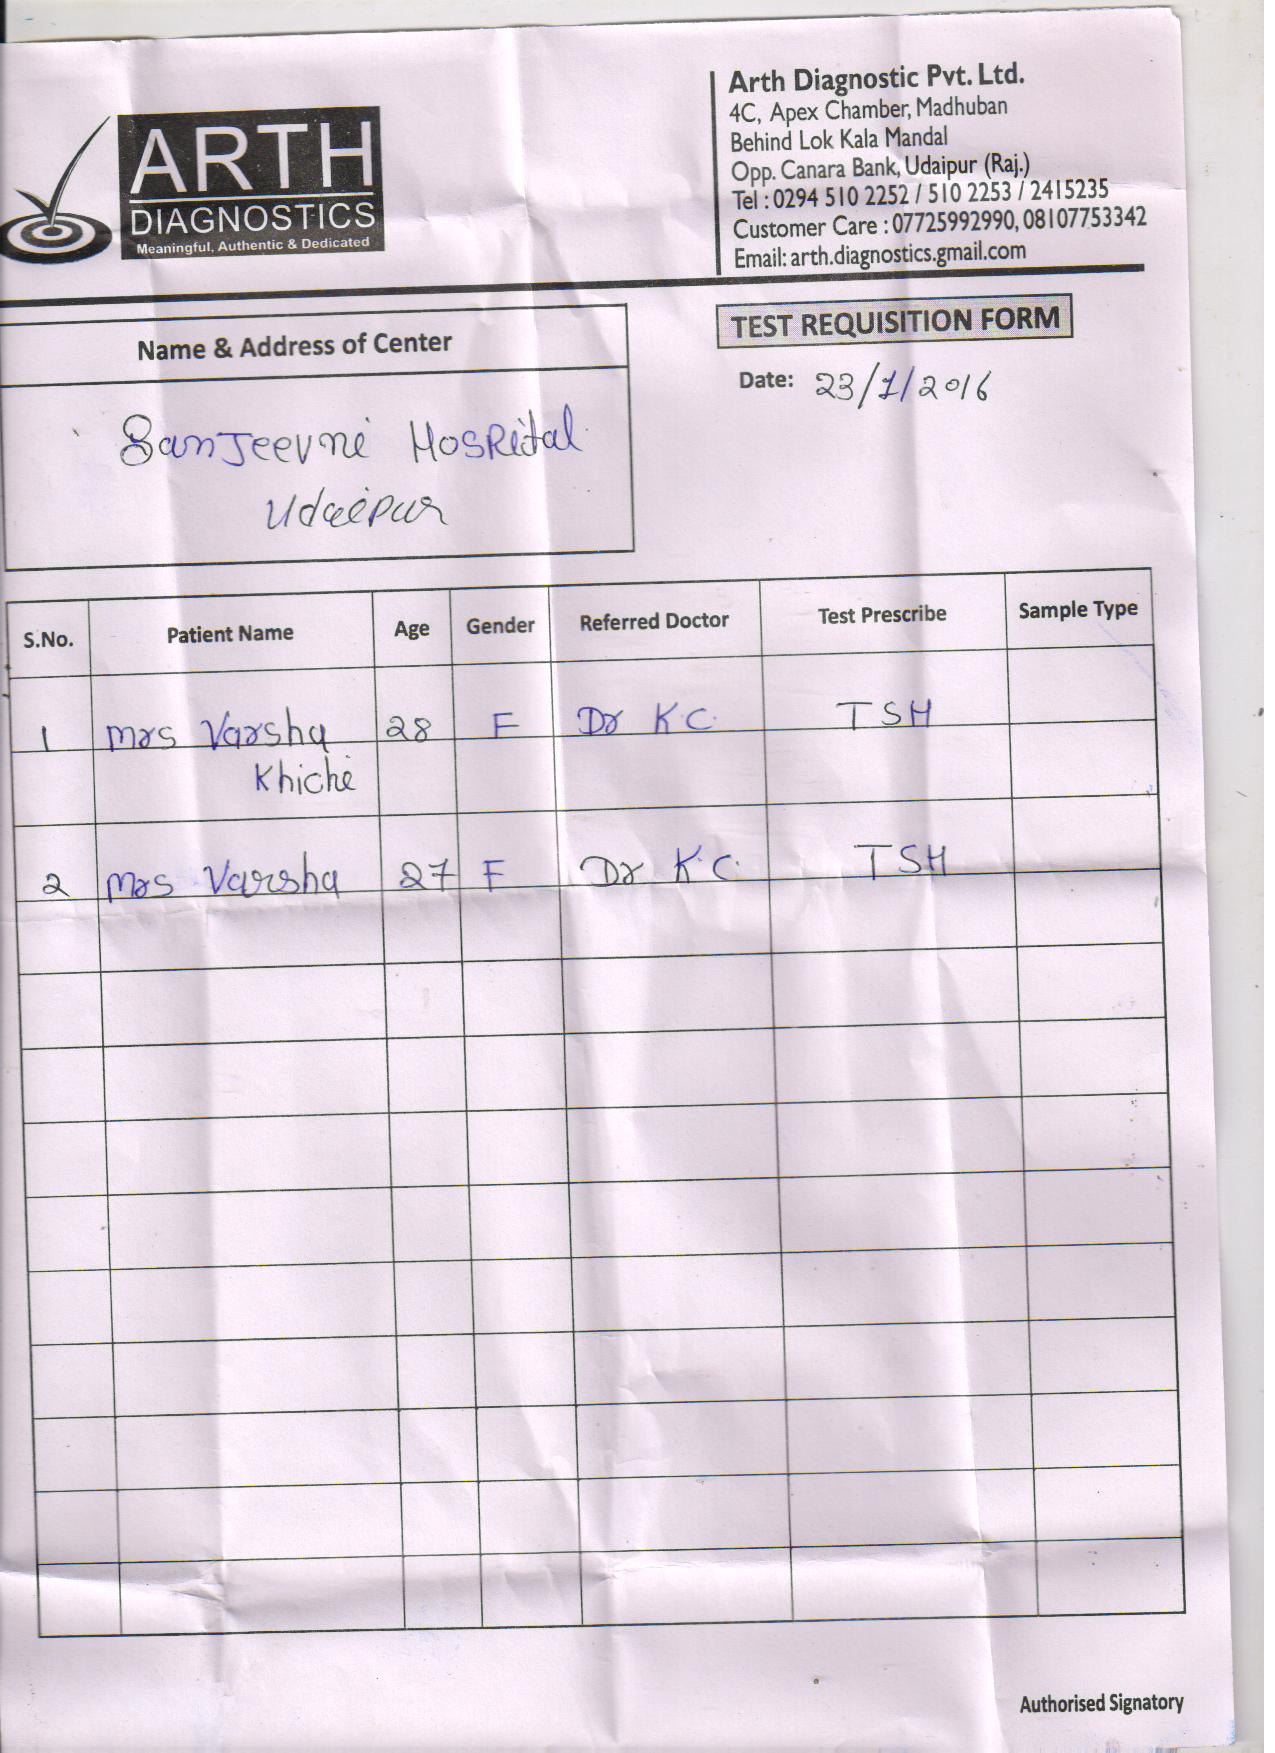 ARTH
DIAGNOSTICS
Meaningful, Authentic & Dedicated
Arth Diagnostic Pvt. Ltd.
4C, Apex Chamber, Madhuban
Behind Lok Kala Mandal
Opp. Canara Bank, Udaipur (Raj.)
Tel : 0294 510 2252 / 510 2253 / 2415235
Customer Care : 07725992990, 08107753342
Email: arth.diagnostics.gmail.com
TEST REQUISITION FORM
Name & Address of Center
Date: 23/1/2016
Sanjeevni Hospital
Udaipur
S.No. Patient Name Age Gender Referred Doctor Test Prescribe Sample Type
1 Mrs Varsha 28 F Dr K.C. TSH
Khichi
2 Mrs Varsha 27 F Dr K.C. TSH
Authorised Signatory